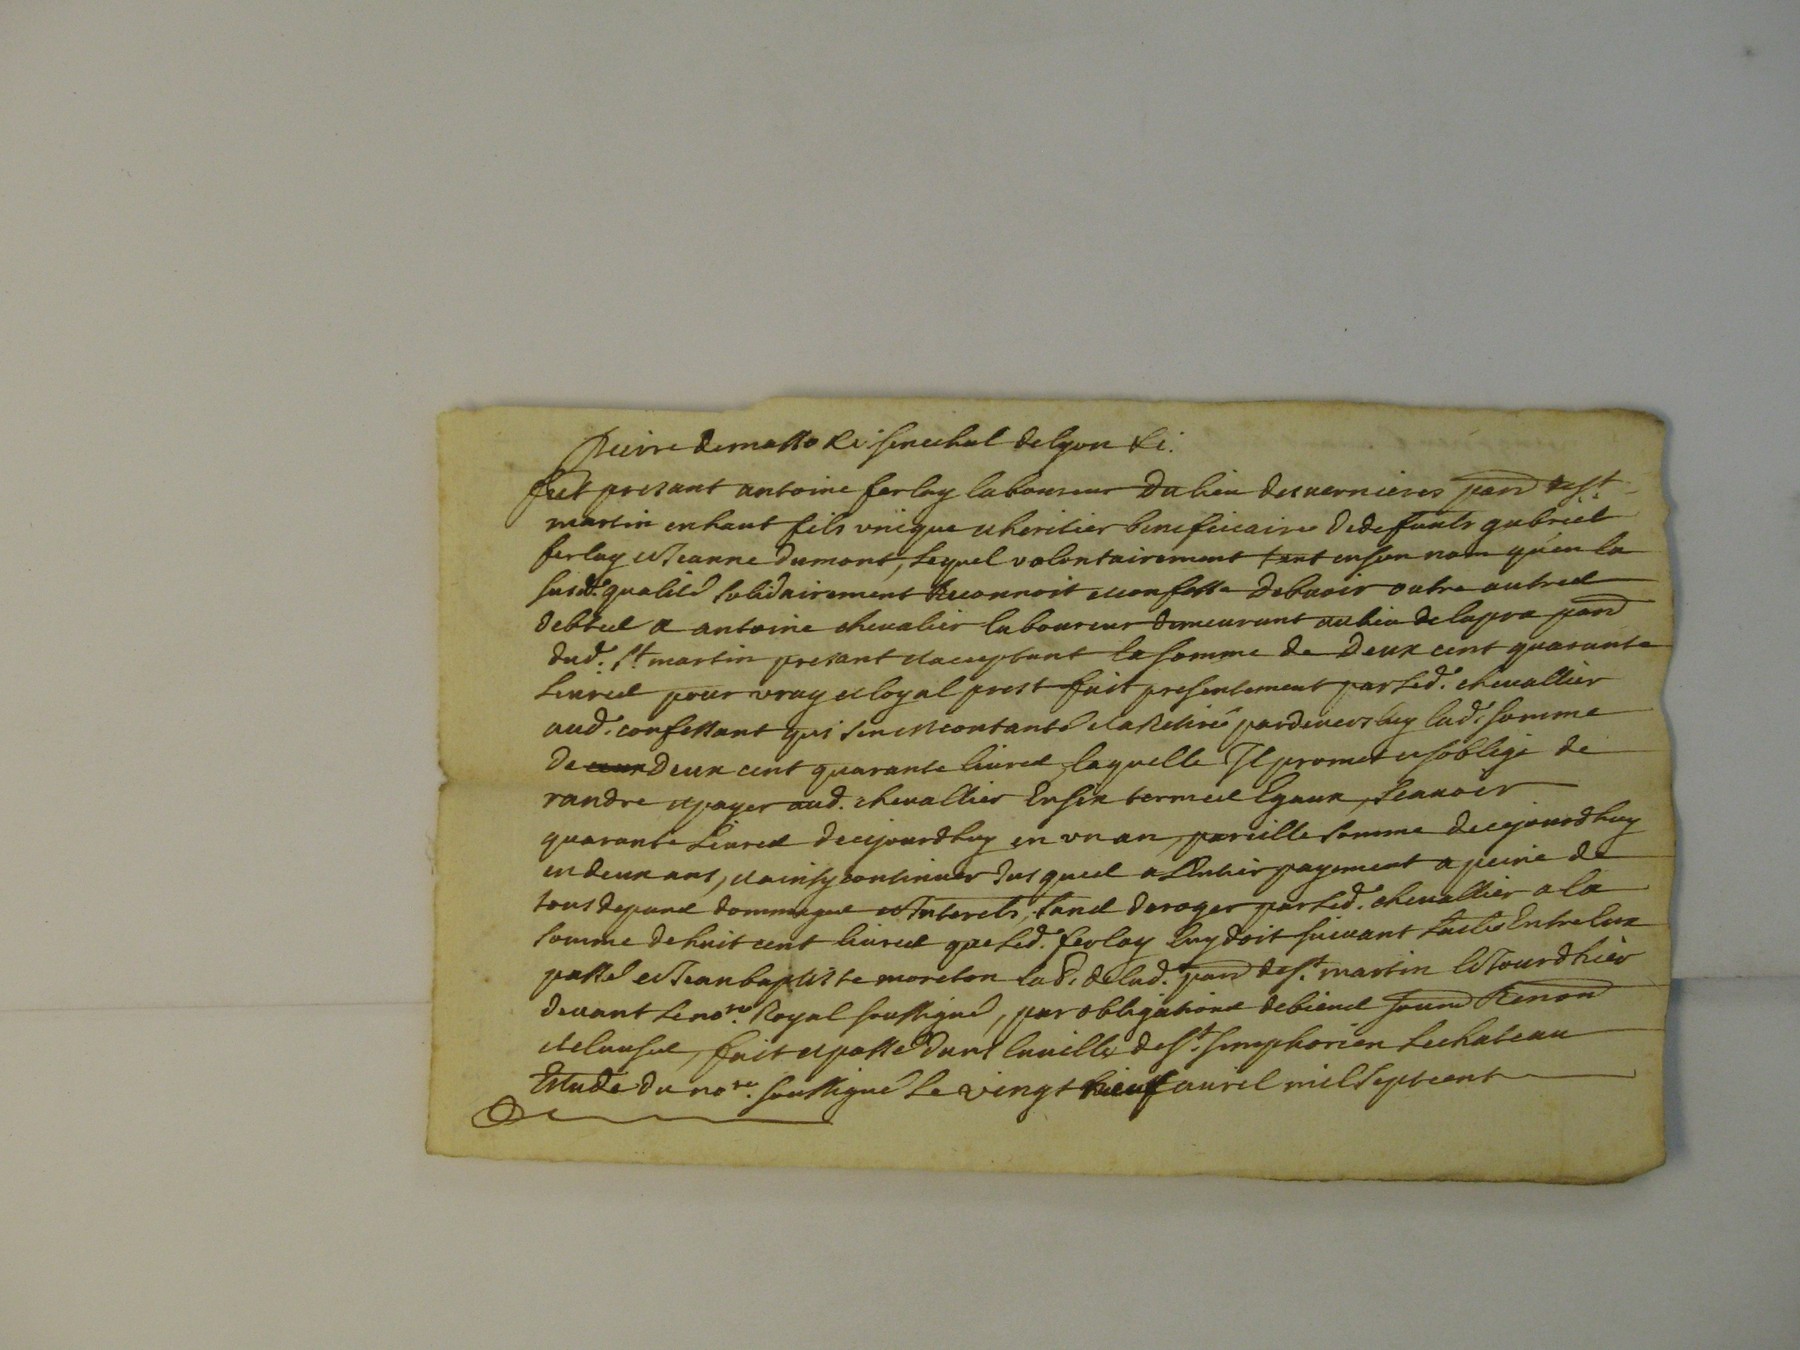 Pierre demasso &c. senechal de lyon &c.
fut presant antoine ferlay laboureur du lieu des vernieres parr. de st
martin en haut fils unique et heritier beneficiaire de deffunts gabriel
ferlay et Jeanne dumont, Lequel volontairement tant en son nom qu'en la
susd. qualité solidairement Reconnoit et confesse debvoir outre autres
debtes a antoine chevalier laboureur demeurant au lieu de lapra parr.
dud. st martin presant et acceptant la somme de Deux cent quarante
Livres pour vray et loyal prest fait presentement par Led. chevallier
aud. confessant qui s'en est contanté et a Retiré pardevers luy lad. somme
de Deux cent quarante livres, laquelle Il promet et s'oblige de
randre et payer aud. chevallier En six termes Egaux, scavoir
quarante Livres de cejourdhuy en un an, pareille somme de cejourdhuy
en deux ans, et ainsy continuer Jusques a L'entier payement a peine de
tous depans dommages et Interets, sans deroger par Led. chevallier a la
somme de huit cent livres que Led. ferlay luy doit suivant Entre Eux
passé et Jean baptiste moreton de lad. parr. de st. martin Le Jourdhier
devant Le nore. Royal soussigné, par obligations de biens soum. Renon.
et clauses, fait et passé dans la ville de st. simphorien Le chateau
Estude du nore. soussigné Le vingt neuf avril mil sept cent